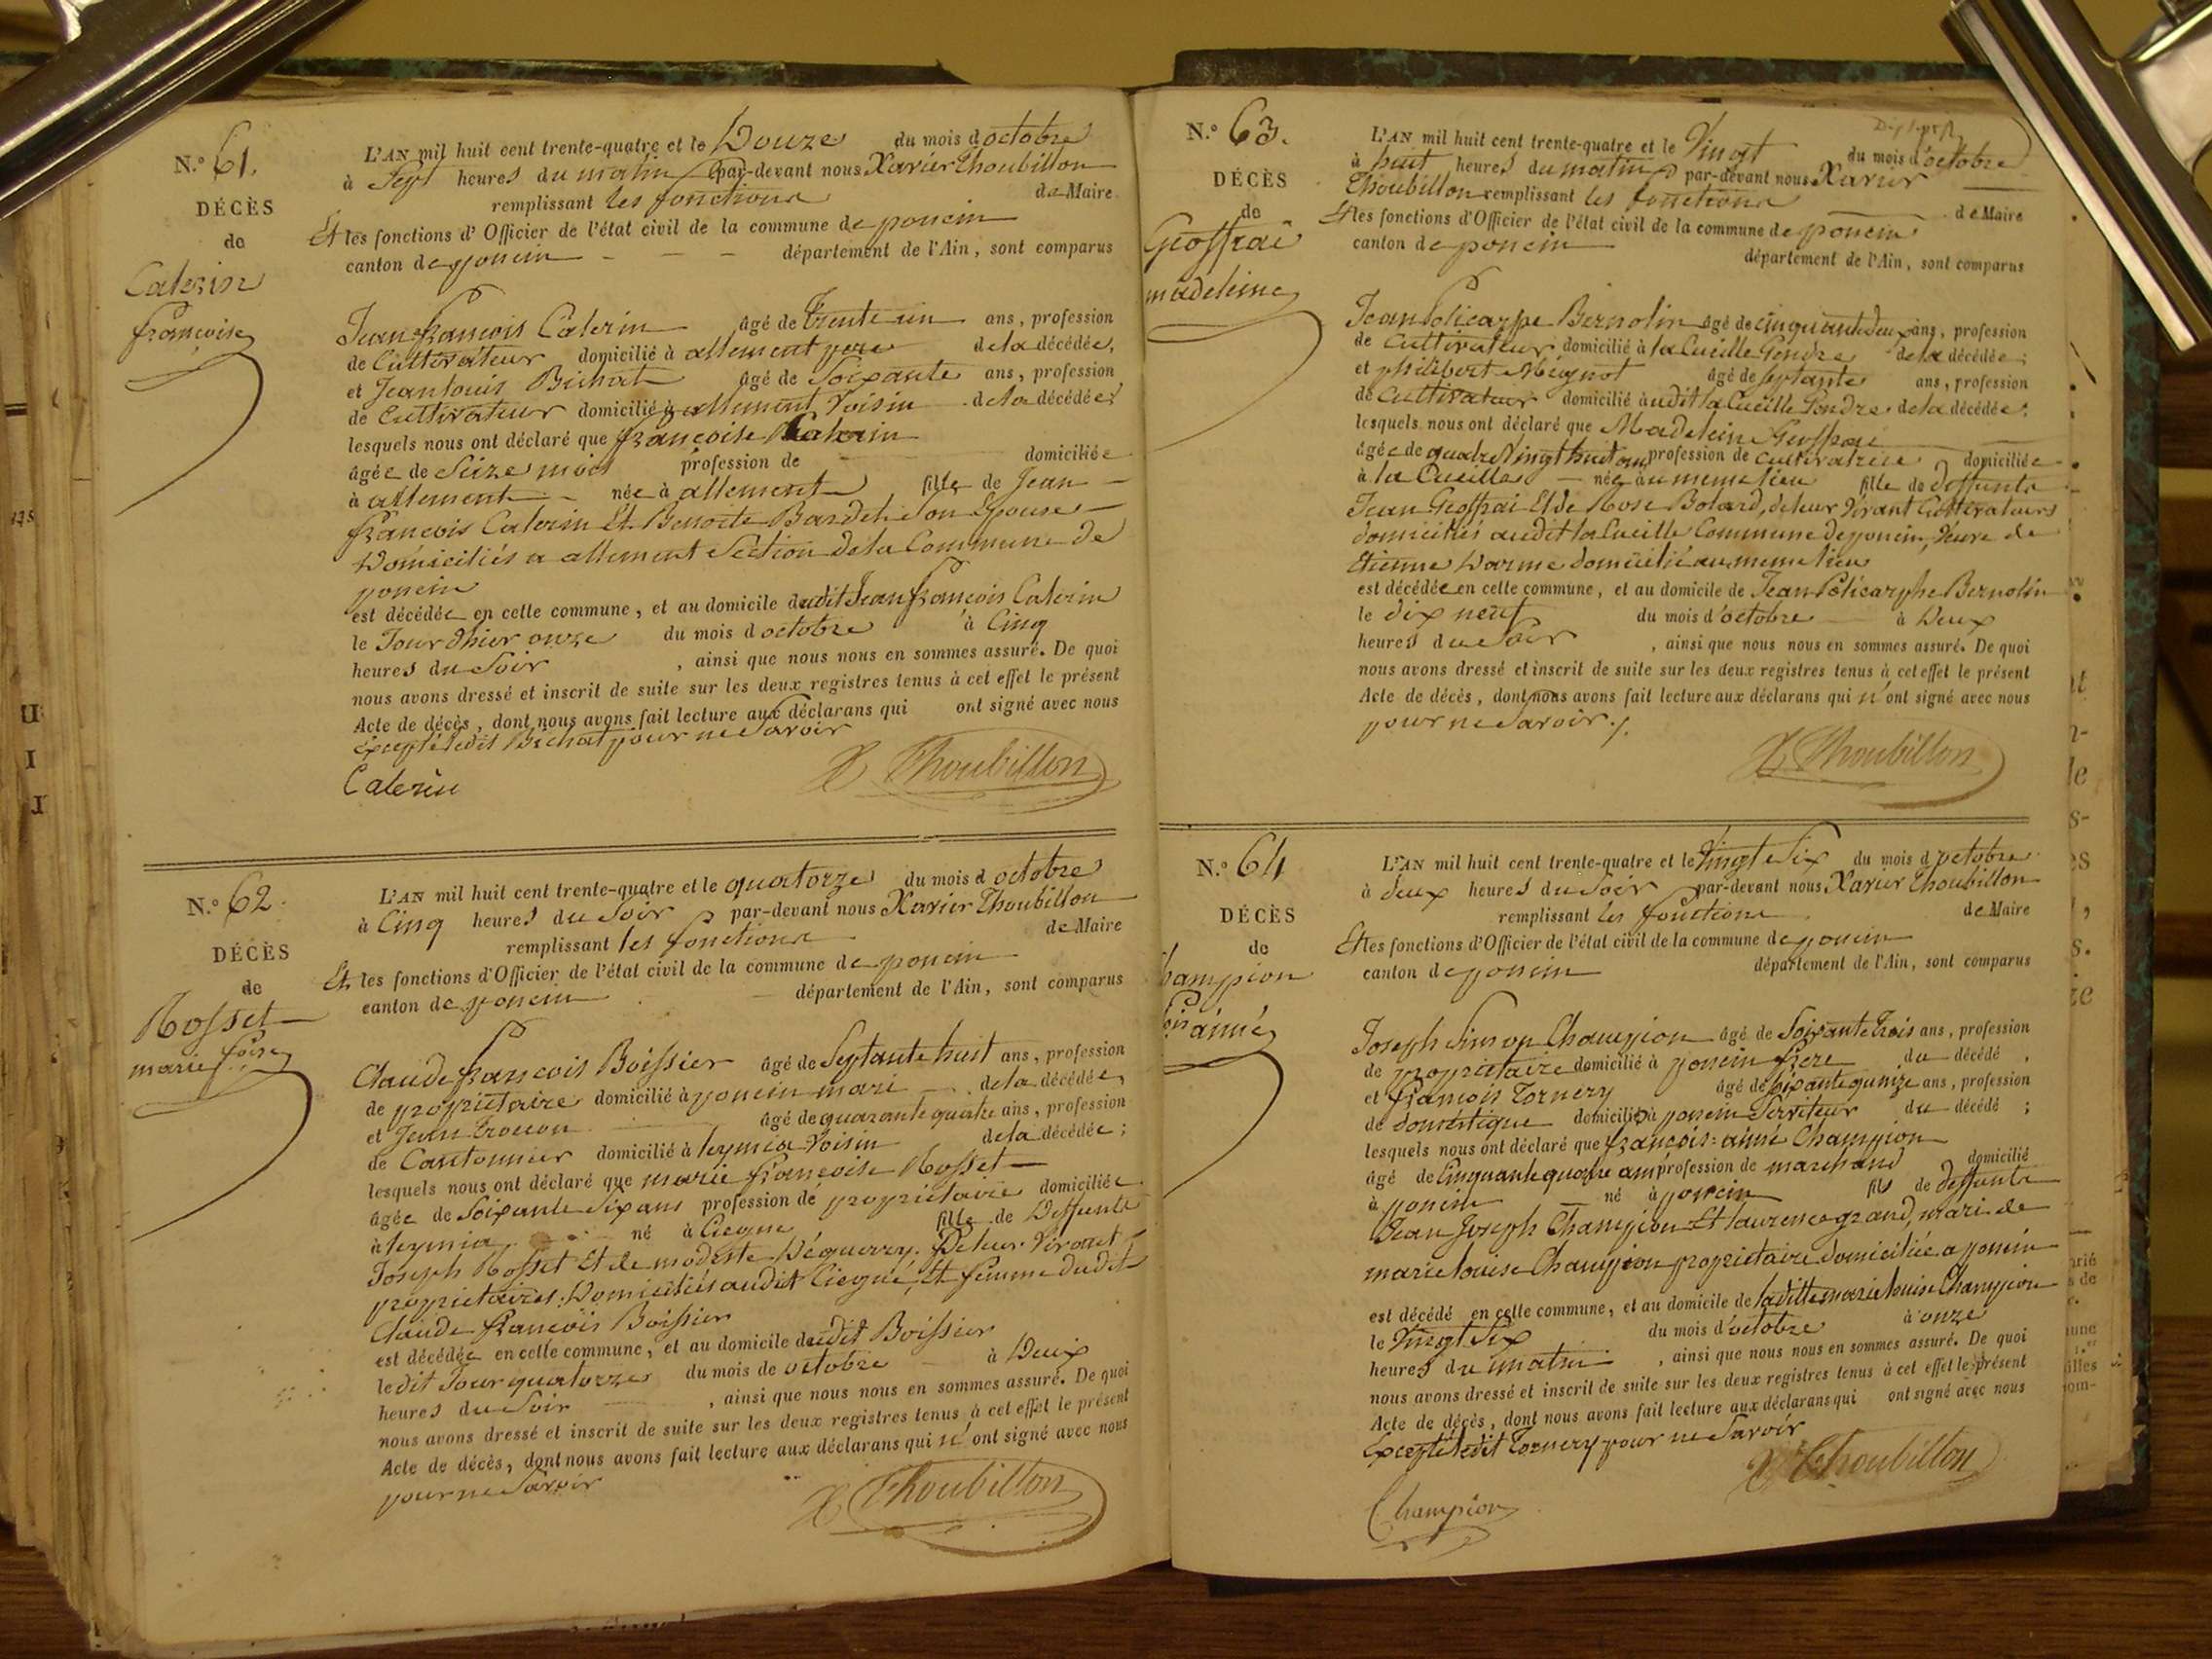 N.° 61.
DÉCÈS
de
Caterin
françoise
L'AN mil huit cent trente-quatre et le Douze du mois d octobre
à Sept heures du matin par-devant nous Xavier Thoubillon
remplissant les fonctions de Maire
Et les fonctions d'Officier de l'état civil de la commune de poncin
canton de poncin département de l'Ain, sont comparus
Jean françois Caterin âgé de trente un ans, profession
de Cultivateur domicilié à allement pere de la décédée,
et Jean louis Bichat âgé de Soixante ans, profession
de Cultivateur domicilié à allement Voisin de la décédée;
lesquels nous ont déclaré que françoise Caterin
âgée de Seize mois profession de domiciliée
à allement née à allement fille de Jean
françois Caterin Et Benoite Bardet Son Epouse
Domiciliés a allement Section de la Commune de
poncin
est décédée en cette commune, et au domicile dudit Jean françois Caterin
le Jour d'hier onze du mois d octobre à Cinq
heures du Soir , ainsi que nous nous en sommes assuré. De quoi
nous avons dressé et inscrit de suite sur les deux registres tenus à cet effet le présent
Acte de décès, dont nous avons fait lecture aux déclarans qui ont signé avec nous
excepté ledit Bichat pour ne Savoir
Caterin X Thoubillon
N.° 62.
DÉCÈS
de
Rosset
marie foise
L'AN mil huit cent trente-quatre et le quatorze du mois d octobre
à Cinq heures du Soir par-devant nous Xavier Thoubillon
remplissant les fonctions de Maire
Et les fonctions d'Officier de l'état civil de la commune de poncin
canton de poncin département de l'Ain, sont comparus
Claude françois Boissier âgé de Septante huit ans, profession
de propriétaire domicilié à poncin mari de la décédée,
et Jean âgé de quarante quatre ans, profession
de Cantonnier domicilié à leymia Voisin de la décédée;
lesquels nous ont déclaré que marie françoise Rosset
âgée de Soixante Six ans profession de propriétaire domiciliée
à leymia né à fille de Deffunts
Joseph Rosset Et de modeste De leur Vivant
propriétaires Domiciliés audit Et femme dudit
Claude françois Boissier
est décédée en cette commune, et au domicile dudit Boissier
ledit Jour quatorze du mois de octobre à Deux
heures du Soir , ainsi que nous nous en sommes assuré. De quoi
nous avons dressé et inscrit de suite sur les deux registres tenus à cet effet le présent
Acte de décès, dont nous avons fait lecture aux déclarans qui n'ont signé avec nous
pour ne Savoir
X Thoubillon
N.° 63.
DÉCÈS
de
Geoffrai
madeleine
L'AN mil huit cent trente-quatre et le Vingt du mois d'octobre
à huit heures du matin par-devant nous Xavier
Thoubillon remplissant les fonctions de Maire
Et les fonctions d'Officier de l'état civil de la commune de poncin
canton de poncin département de l'Ain, sont comparus
Jean Policarpe Bernolin âgé de cinquante deux ans, profession
de Cultivateur domicilié à la Cueille Gendre de la décédée;
et philibert Mignot âgé de Septante ans, profession
de Cultivateur domicilié audit la Cueille Gendre de la décédée;
lesquels nous ont déclaré que Madeleine Geoffrai
âgée de quatre Vingt huit ans profession de cultivatrice domiciliée
à la Cueille née au meme lieu fille de deffunts
Jean Geoffrai Et de Rose Bolard, de leur Vivant Cultivateurs
domiciliés audit la Cueille Commune de poncin, Veuve de
Etienne Darme domicilié au meme lieu
est décédée en cette commune, et au domicile de Jean Policarphe Bernolin
le dix neuf du mois d'octobre à Deux
heures du Soir , ainsi que nous nous en sommes assuré. De quoi
nous avons dressé et inscrit de suite sur les deux registres tenus à cet effet le présent
Acte de décès, dont nous avons fait lecture aux déclarans qui n'ont signé avec nous
pour ne Savoir ./.
X Thoubillon
N.° 64
DÉCÈS
de
hampion
ois aimé
L'AN mil huit cent trente-quatre et le Vingt Six du mois d'octobre
à deux heures du Soir par-devant nous Xavier Thoubillon
remplissant les fonctions de Maire
Et les fonctions d'Officier de l'état civil de la commune de poncin
canton de poncin département de l'Ain, sont comparus
Joseph Simon Champion âgé de Soixante trois ans, profession
de propriétaire domicilié à poncin frere du décédé ,
et françois Tornery âgé de Soixante quinze ans, profession
de domestique domicilié à poncin Serviteur du décédé ;
lesquels nous ont déclaré que françois=aimé Champion
âgé de Cinquante quatre ans profession de marchand domicilié
à poncin né à poncin fils de deffunts
Jean Joseph Champion Et laurence grand, mari de
marie louise Champion propriétaire domiciliée a poncin
est décédé en cette commune, et au domicile de laditte marie louise Champion
le Vingt Six du mois d'octobre à onze
heures du matin , ainsi que nous nous en sommes assuré. De quoi
nous avons dressé et inscrit de suite sur les deux registres tenus à cet effet le présent
Acte de décès, dont nous avons fait lecture aux déclarans qui ont signé avec nous
Excepté ledit Tornery pour ne Savoir
X Thoubillon
Champion